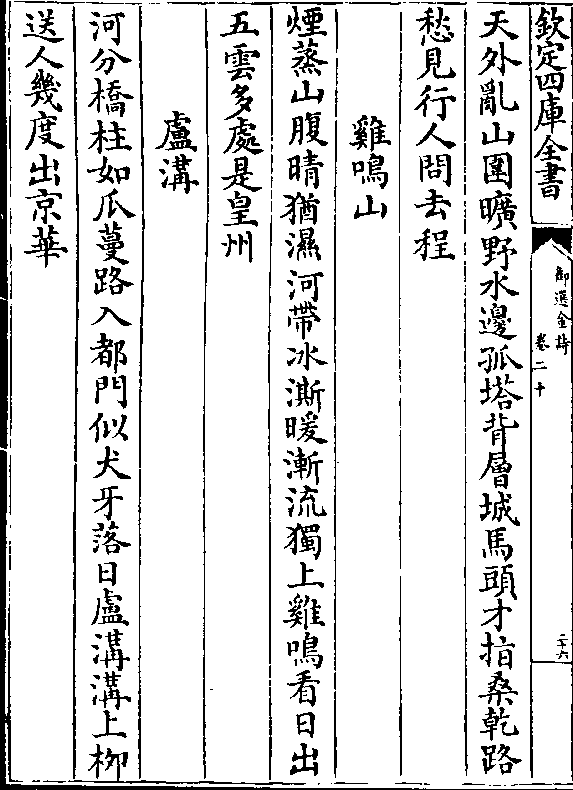 欽定四庫全書
御選金詩
卷二十
二十六
天外亂山圍曠野水邊孤塔背層城馬頭才指桑乾路
愁見行人問去程
雞鳴山
煙蒸山腹晴猶濕河帶冰澌暖漸流獨上雞鳴看日出
五雲多處是皇州
盧溝
河分橋柱如瓜蔓路入都門似犬牙落日盧溝溝上柳
送人幾度出京華